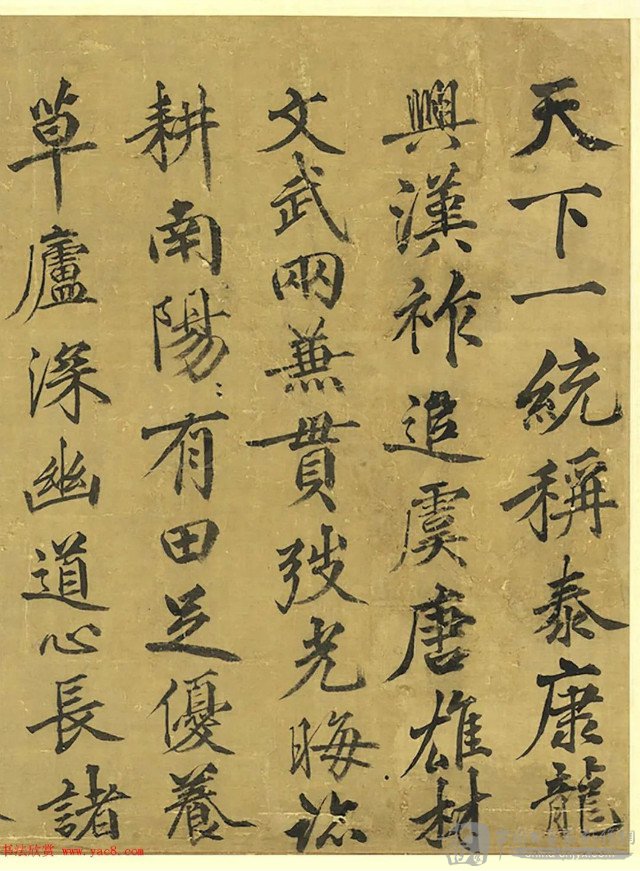 天下一統稱泰康龍
興漢祚追虞唐雄材
文武兩兼貫弢光晦跡
耕南陽〻有田足優養
草廬深幽道心長諸
书法欣赏 www.yac8.com